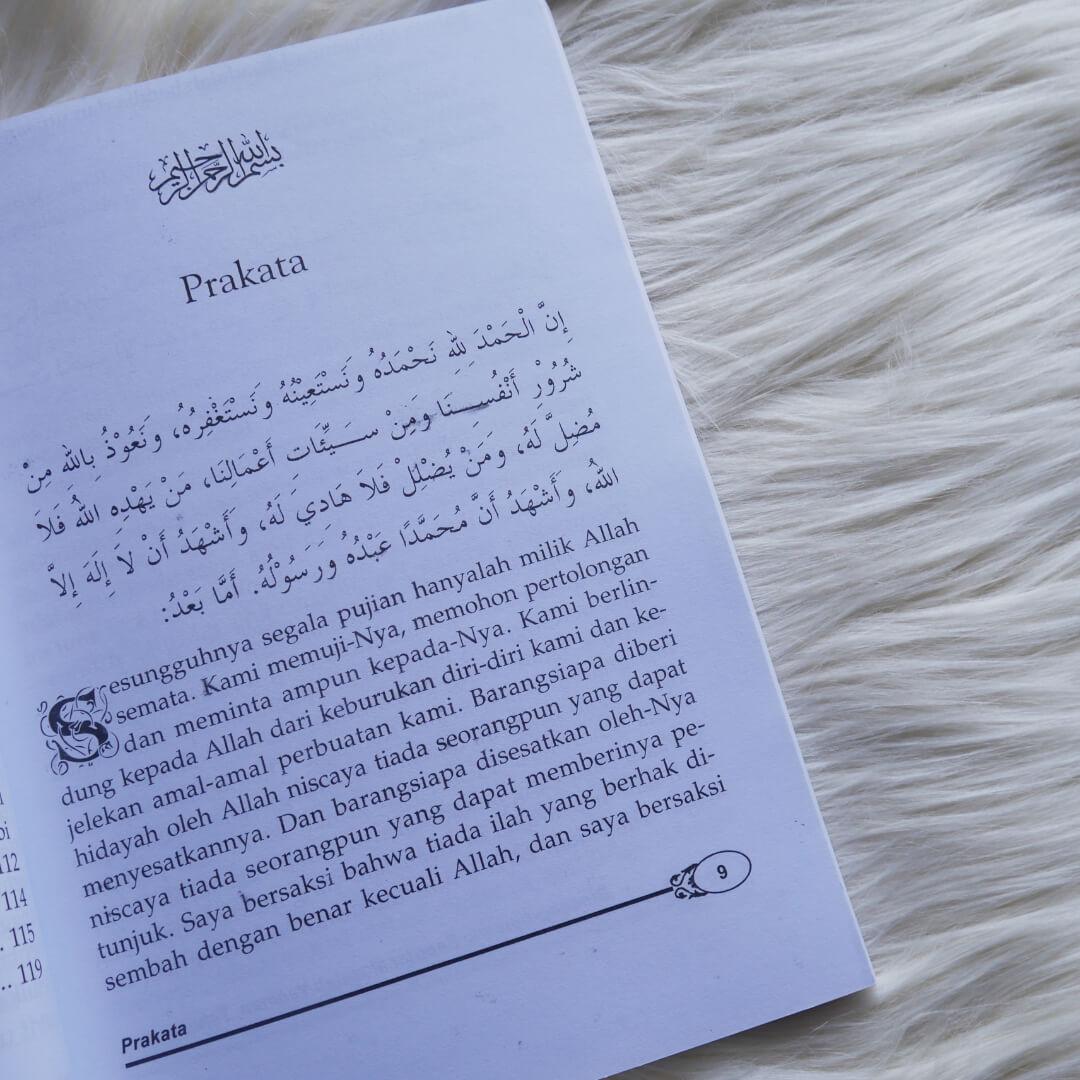 بسم الله الرحمن الرحيم
Prakata
إِنَّ الْحَمْدَ لِلَّهِ نَحْمَدُهُ وَنَسْتَعِيْنُهُ وَنَسْتَغْفِرُهُ، وَنَعُوْذُ بِاللهِ مِنْ
شُرُوْرِ أَنْفُسِنَا وَمِنْ سَيِّئَاتِ أَعْمَالِنَا، مَنْ يَهْدِهِ اللهُ فَلاَ
مُضِلَّ لَهُ، وَمَنْ يُضْلِلْ فَلاَ هَادِيَ لَهُ، وَأَشْهَدُ أَنْ لاَ إِلَهَ إِلاَّ
اللهُ، وَأَشْهَدُ أَنَّ مُحَمَّدًا عَبْدُهُ وَرَسُوْلُهُ. أَمَّا بَعْدُ:
Sesungguhnya segala pujian hanyalah milik Allah
semata. Kami memuji-Nya, memohon pertolongan
dan meminta ampun kepada-Nya. Kami berlin-
dung kepada Allah dari keburukan diri-diri kami dan ke-
jelekan amal-amal perbuatan kami. Barangsiapa diberi
hidayah oleh Allah niscaya tiada seorangpun yang dapat
menyesatkannya. Dan barangsiapa disesatkan oleh-Nya
niscaya tiada seorangpun yang dapat memberinya pe-
tunjuk. Saya bersaksi bahwa tiada ilah yang berhak di-
sembah dengan benar kecuali Allah, dan saya bersaksi
9
Prakata
112
114
. 115
.. 119